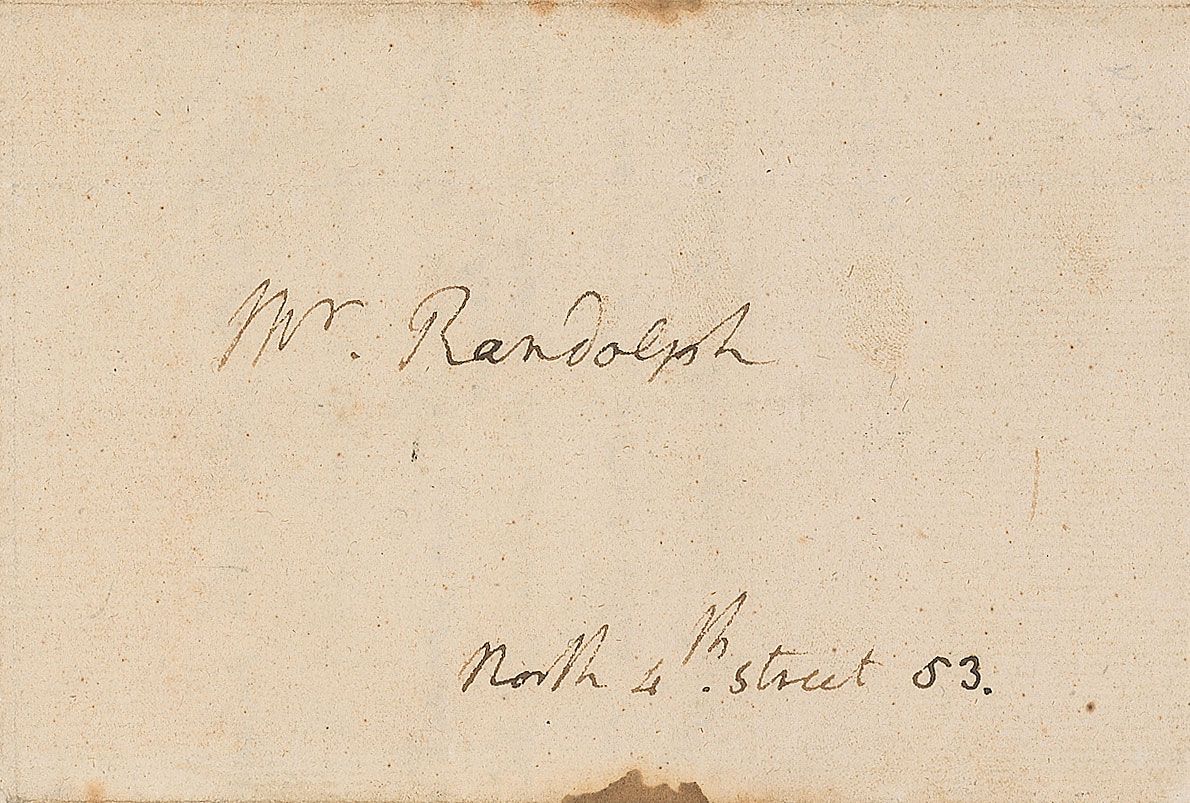 Mr. Randolph
North 4th. street 53.